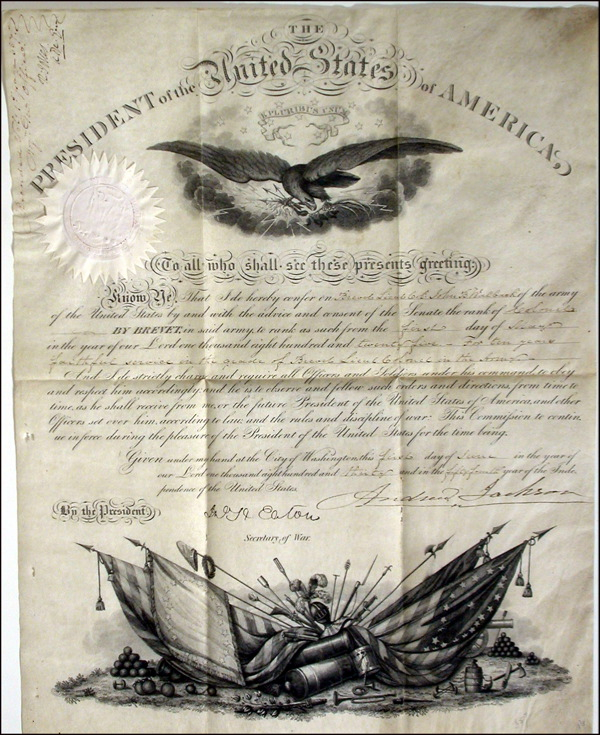 THE
PRESIDENT of the United States of AMERICA,
E PLURIBUS UNUM
To all who shall see these presents greeting:
Know Ye, That I do hereby confer on Brevet Lieut Col. John B. Walbach of the army
of the United States by and with the advice and consent of the Senate the rank of Colonel
BY BREVET, in said army, to rank as such from the first day of May
in the year of our Lord one thousand eight hundred and twenty five - For ten years
faithful service in the grade of Brevet Lieut Colonel in the Army
And I do strictly charge and require all Officers and Soldiers under his command to obey
and respect him accordingly: and he is to observe and follow such orders and directions from time to
time, as he shall receive from me, or the future President of the United States of America, and other
Officers set over him, according to law, and the rules and discipline of war: This Commission to contin-
ue in force during the pleasure of the President of the United States for the time being.
Given under my hand at the City of Washington this first day of June in the year of
our Lord one thousand eight hundred and thirty and in the fifty fourth year of the Inde-
pendence of the United States.
Andrew Jackson
By the President,
J. H. Eaton
Secretary of War.